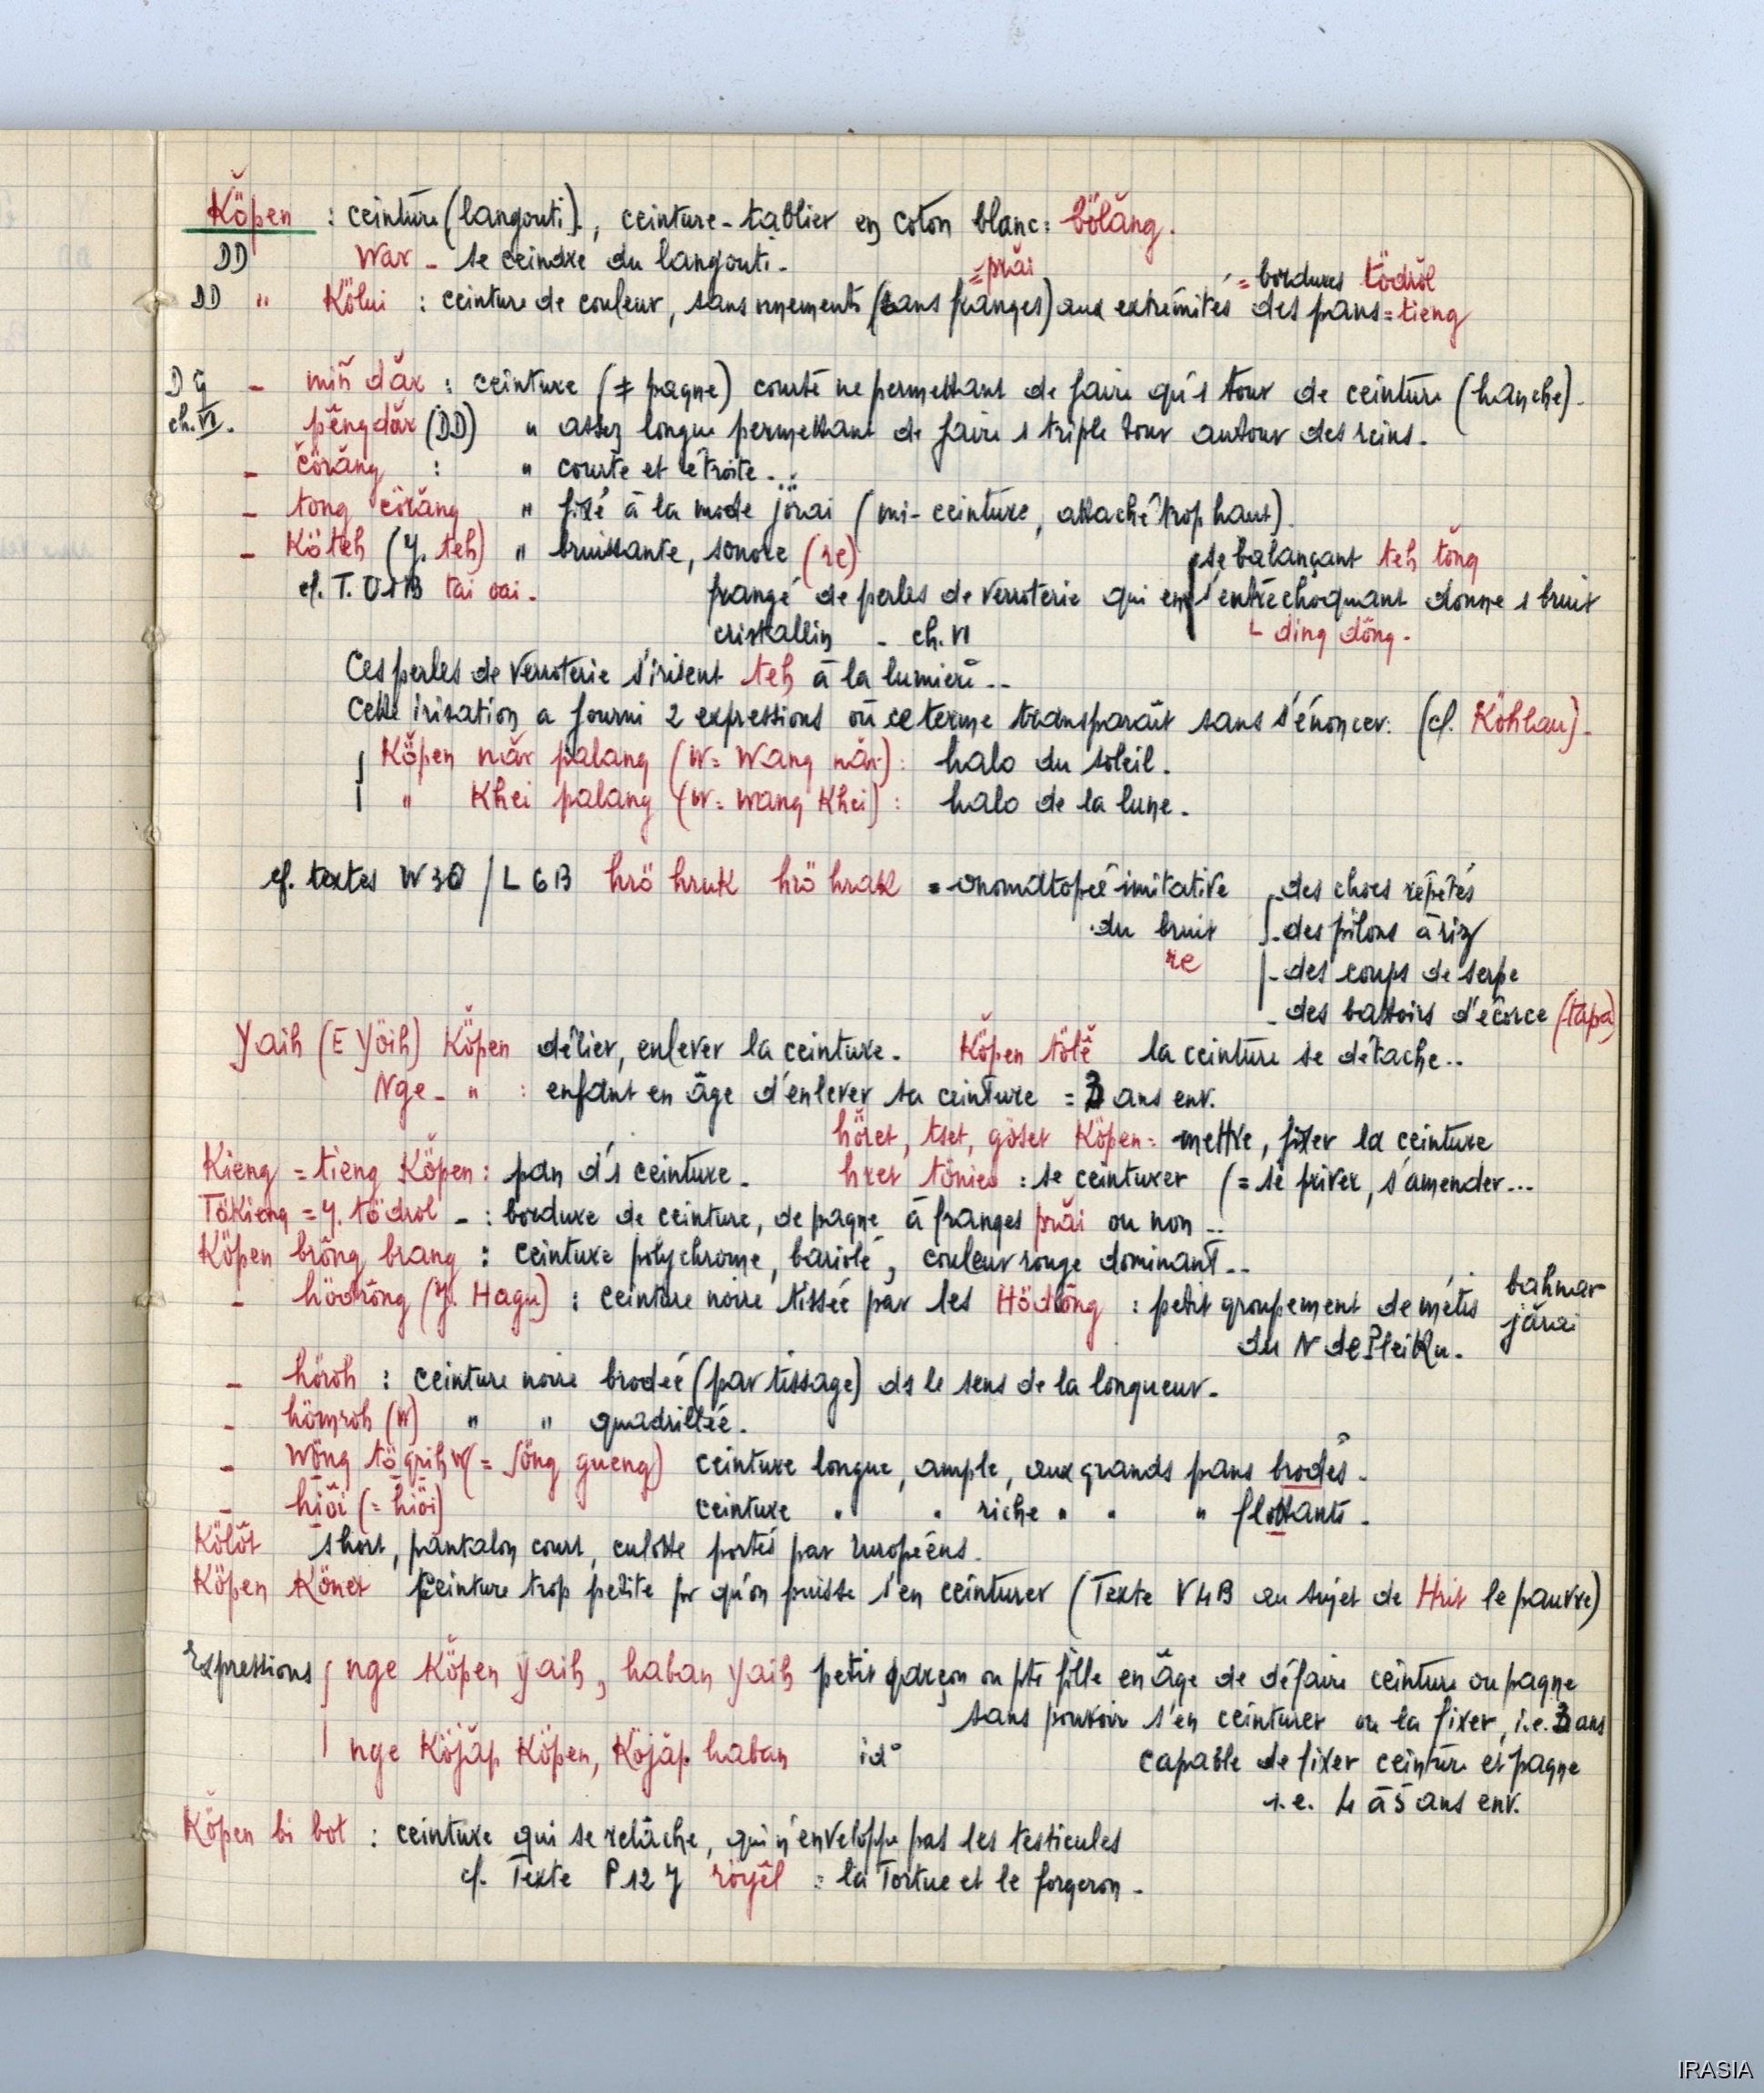 Kö̆pen : ceinture (langouti), ceinture-tablier en coton blanc = bölăng.
DD War - se ceindre du langouti -
= prăi
= bordures tödrŏl
DD " Kölui : ceinture de couleur, sans ornements (sans franges) aux extrémités des pans = tieng
DG - miñ dăr : ceinture (≠ pagne) courte ne permettant de faire qu'1 tour de ceinture (hanche) -
ch. VI. pĕngdăr (DD) " assez longue permettant de faire 1 triple tour autour des reins -
- cŏrăng : " courte et étroite - ..
- tong cŏrăng " fixé à la mode jörai (mi-ceinture, attaché trop haut).
- Köteh (y. teh) " bruissante, sonore (re)
se balançant teh tŏng
cf. T. 01B tai oai - frangé de perles de verroterie qui en s'entrechoquant donne 1 bruit
cristallin - ch. VI
ding dŏng -
Ces perles de verroterie s'irisent teh à la lumière --
Cette irisation a fourni 2 expressions où ce terme transparaît sans s'énoncer. (cf. Köhlau) -
Kö̆pen năr palang (W = Wang năr) : halo du soleil.
" Khei palang (W = Wang Khei) : halo de la lune -
cf. textes W30 / L6B hrö hruk hrö hrak = onomatopée imitative
du bruit
re
des chocs répétés
- des pilons à riz
- des coups de serpe
- des battoirs d'écorce (tapa)
Yaih (E Yöih) Kö̆pen délier, enlever la ceinture - Kö̆pen tölĕ la ceinture se détache --
Nge - " : enfant en âge d'enlever sa ceinture = 3 ans env.
höret, tset, göset Köpen = mettre, fixer la ceinture
Kieng = tieng Kö̆pen : pan d'1 ceinture -
hret : se ceinturer (= se priver, s'amender ...
Tökieng = y. tödrol - : bordure de ceinture, de pagne à franges prăi ou non --
Köpen brŏng brang : ceinture polychrome, bariolé, couleur rouge dominant --
- hödrŏng (y. Hagu) : ceinture noire tissée par les Hödrŏng : petit groupement de métis bahnar
jărai
du N de Pleiku -
- höroh : ceinture noire brodée (par tissage) ds le sens de la longueur -
- hömroh (W) " " quadrillée -
- Wŏng tögrih W (= sŏng gueng) ceinture longue, ample, aux grands pans brodés -
- hiŏi (= hiöi) ceinture " " riche " " " flottants -
Kölŏt short, pantalon court, culotte portés par Européens -
Köpen Könet ceinture trop petite pr qu'on puisse s'en ceinturer (Texte V4B au sujet de Hrit le pauvre)
Expressions nge Kö̆pen yaih, haban yaih petit garçon ou pte fille en âge de défaire ceinture ou pagne
sans pouvoir s'en ceinturer ou la fixer, i.e. 3 ans
nge Köjăp Köpen, Köjăp haban id° capable de fixer ceinture et pagne
i.e. 4 à 5 ans env.
Kö̆pen bi bot : ceinture qui se relâche, qui n'enveloppe pas les testicules
cf. Texte P12 y röyĕl : la Tortue et le forgeron -
IRASIA